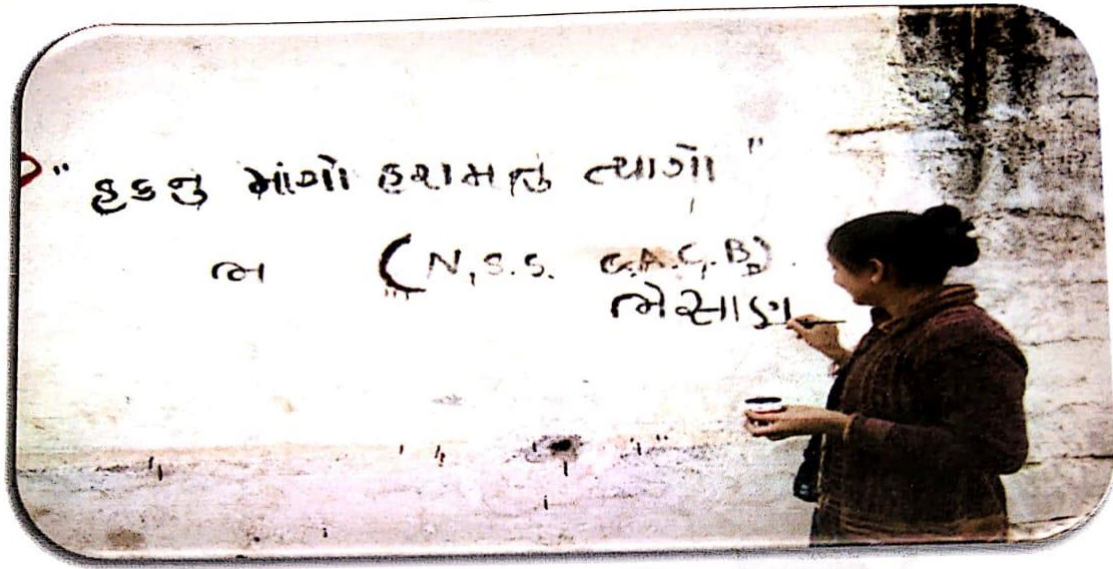 "હકનુ માંગો હરામનું ત્યાગો"
ભ (N.S.S. G.A.C.B).
ભેસાણ